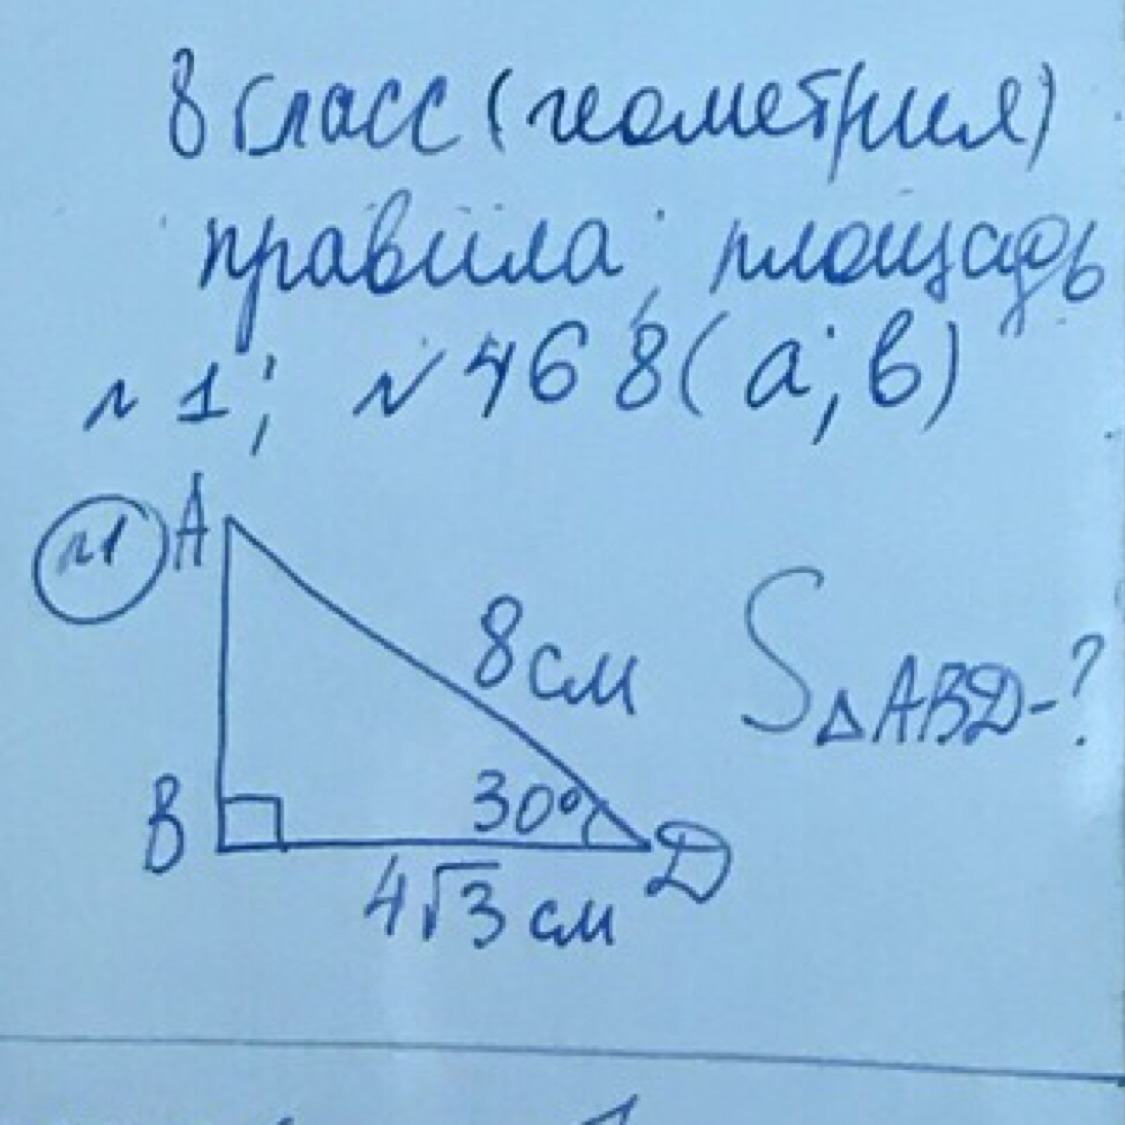 8 класс (геометрия)
правила; площадь
№1; №468(а;в)
№1
A
8см
S△ABD-?
30°
B
D
4√3 см